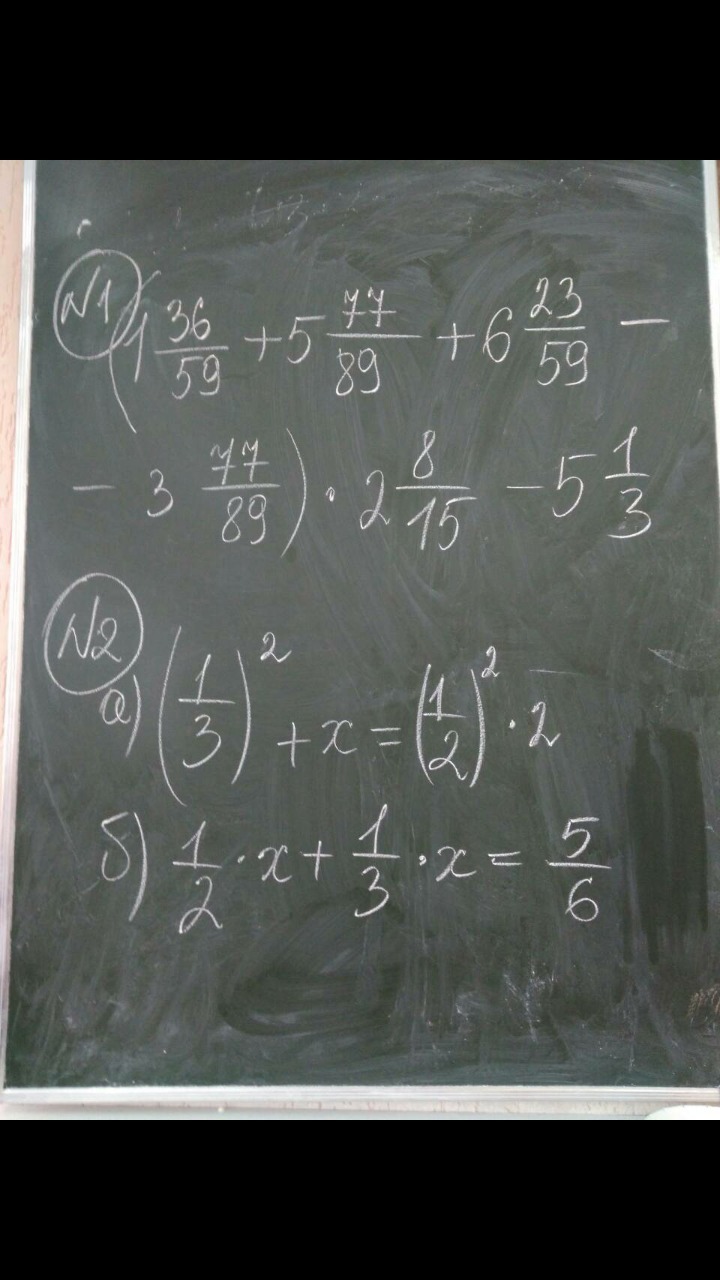 №1 (1 36/59 + 5 77/89 + 6 23/59 −
− 3 77/89) · 2 8/15 − 5 1/3
№2
а) (1/3)² + x = (1/2)² · 2
б) 1/2 · x + 1/3 · x = 5/6